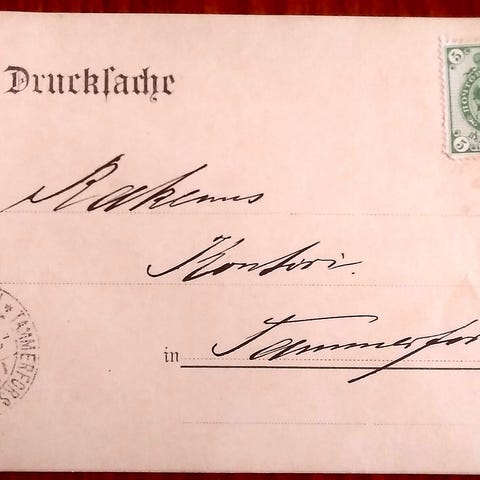 Drucksache
5
Rakennus
Konttori.
in Tammerfors
TAMMERFORS
5